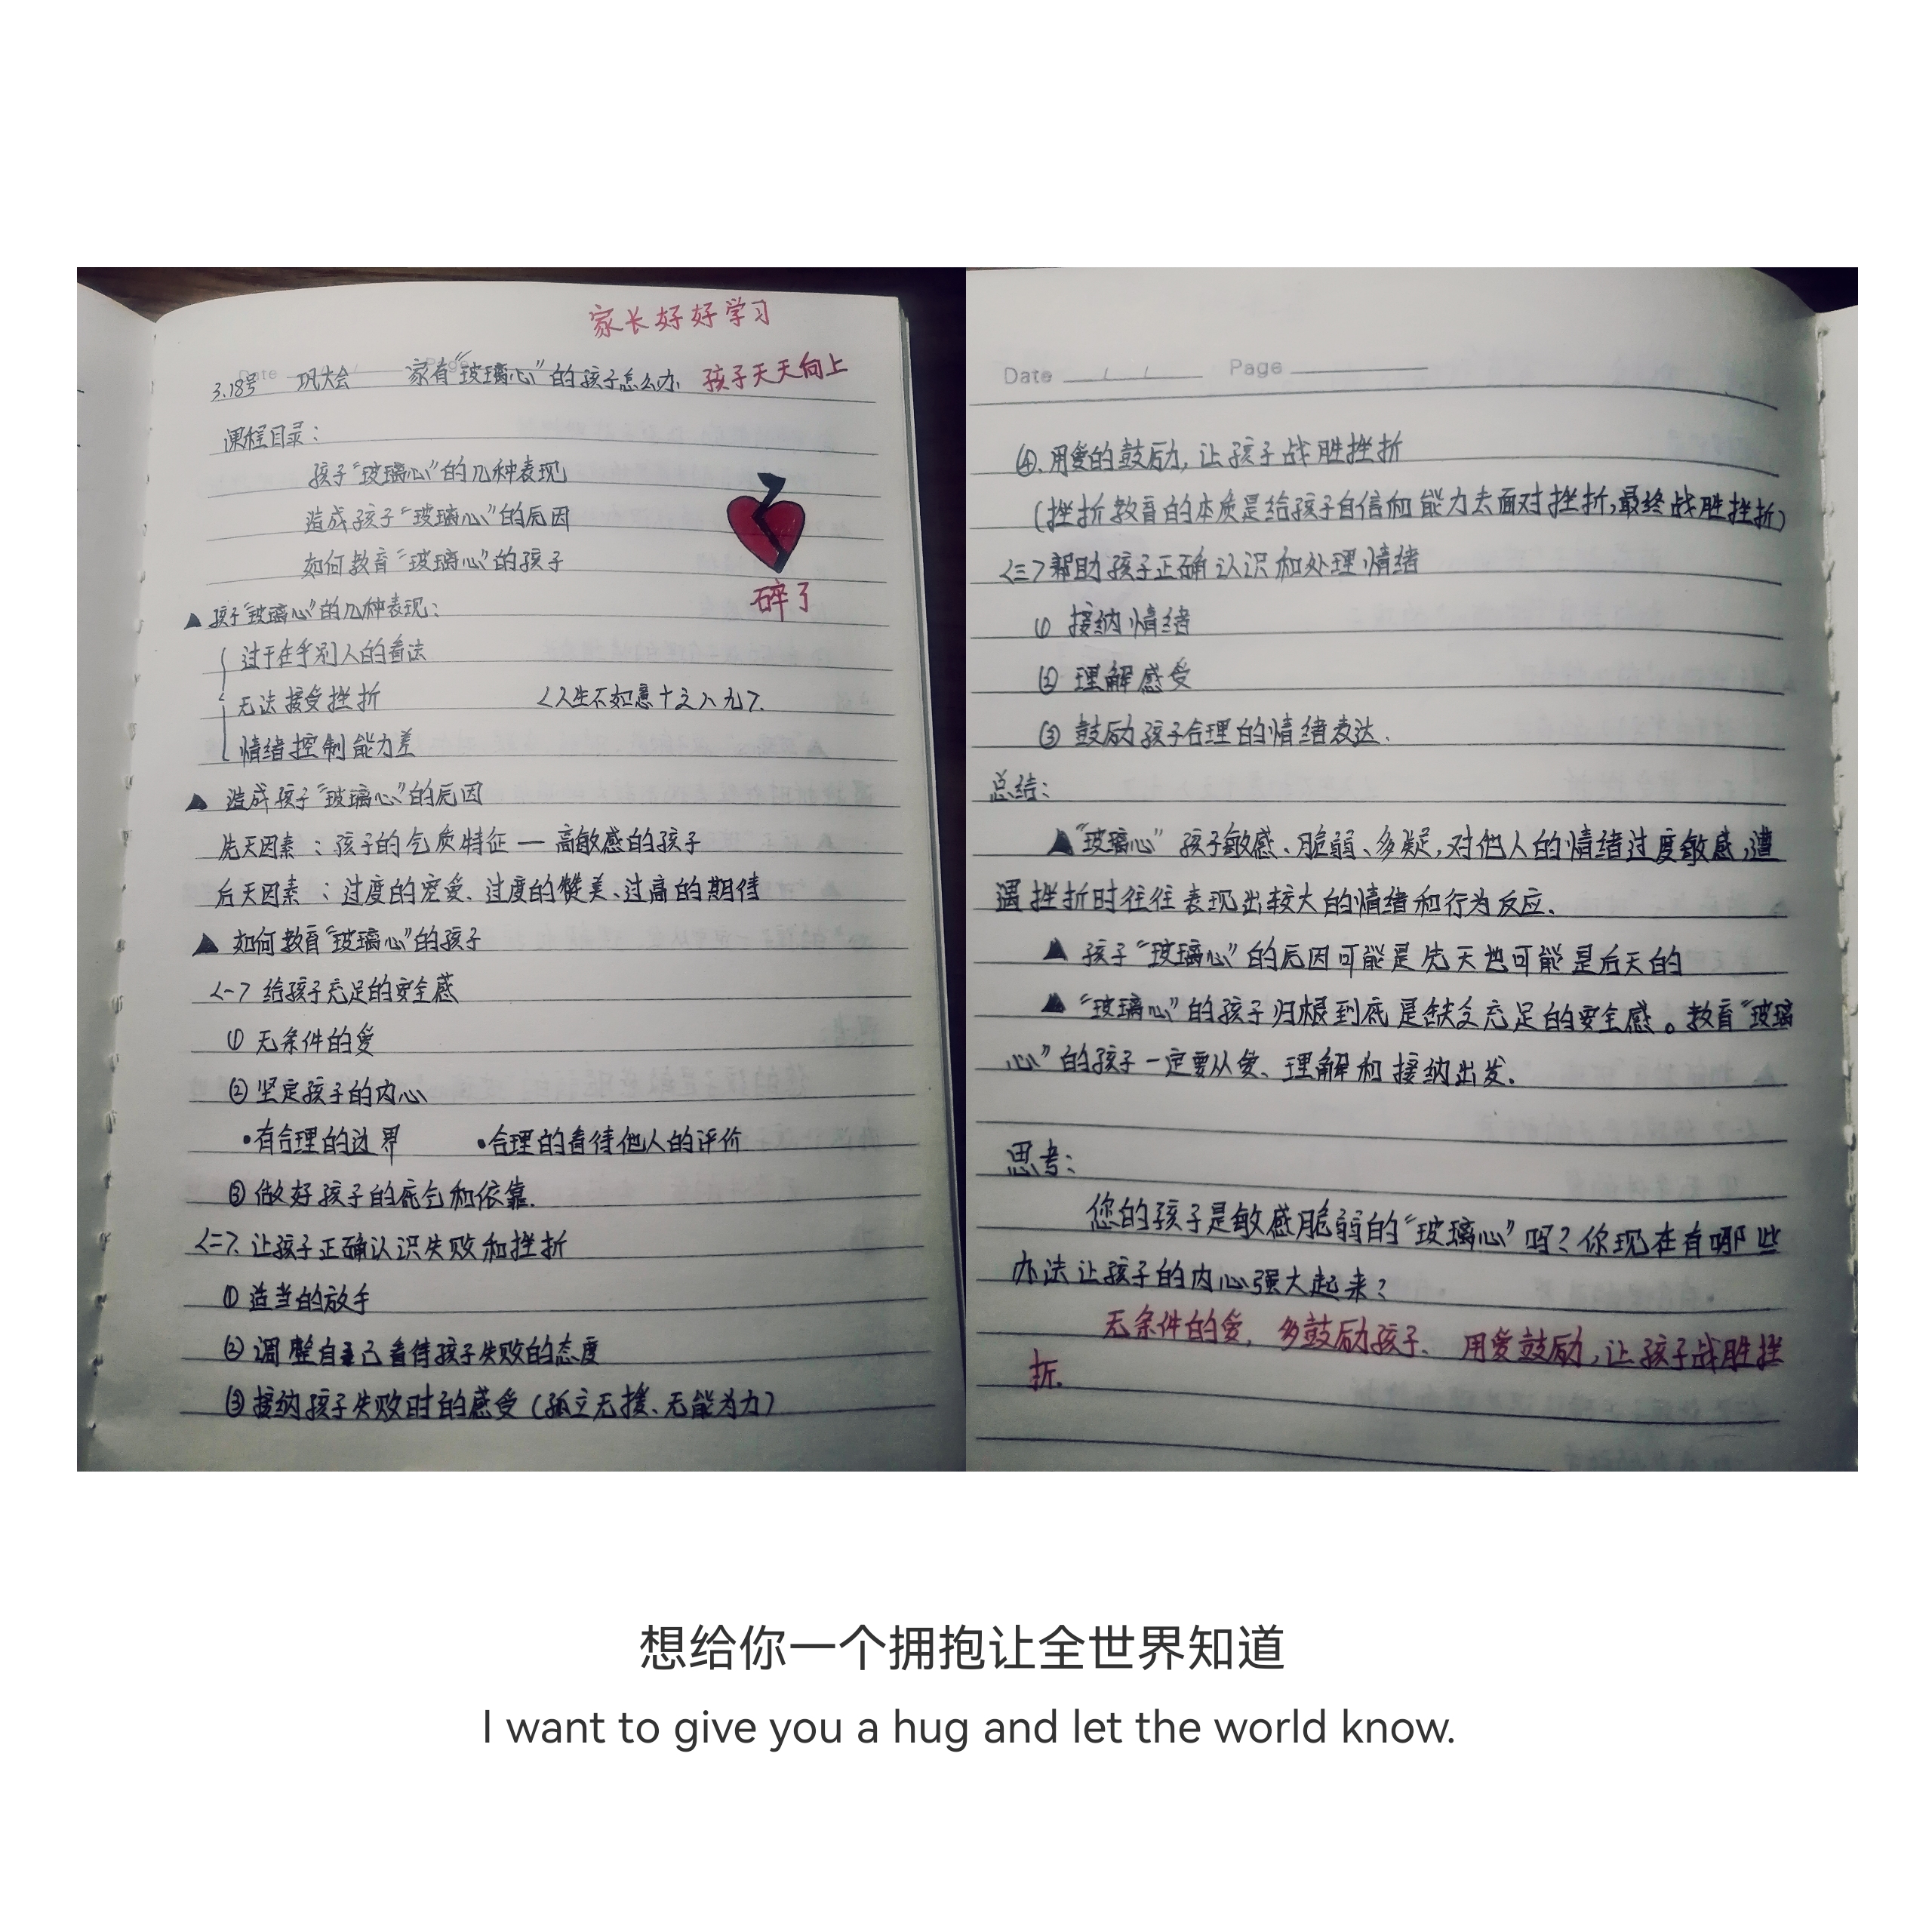 家长好好学习
3.18号 巩大会 家有“玻璃心”的孩子怎么办 孩子天天向上
课程目录：
孩子“玻璃心”的几种表现
造成孩子“玻璃心”的原因
如何教育“玻璃心”的孩子
碎了
▲孩子“玻璃心”的几种表现：
过于在乎别人的看法
无法接受挫折 <人生不如意十之八九>.
情绪控制能力差
▲ 造成孩子“玻璃心”的原因
先天因素：孩子的气质特征—高敏感的孩子
后天因素：过度的宠爱、过度的赞美、过高的期待
▲ 如何教育“玻璃心”的孩子
<一> 给孩子充足的安全感
① 无条件的爱
② 坚定孩子的内心
•有合理的边界 •合理的看待他人的评价
③ 做好孩子的底气和依靠.
<二>. 让孩子正确认识失败和挫折
① 适当的放手
② 调整自己看待孩子失败的态度
③ 接纳孩子失败时的感受（孤立无援、无能为力）
Date / / Page
④.用爱的鼓励，让孩子战胜挫折
（挫折教育的本质是给孩子自信和能力去面对挫折，最终战胜挫折）
<三>帮助孩子正确认识和处理情绪
① 接纳情绪
② 理解感受
③ 鼓励孩子合理的情绪表达.
总结：
▲“玻璃心”孩子敏感、脆弱、多疑，对他人的情绪过度敏感，遭
遇挫折时往往表现出较大的情绪和行为反应.
▲ 孩子“玻璃心”的原因可能是先天也可能是后天的
▲ “玻璃心”的孩子归根到底是缺乏充足的安全感。教育“玻璃
心”的孩子一定要从爱、理解和接纳出发.
思考：
您的孩子是敏感脆弱的“玻璃心”吗？你现在有哪些
办法让孩子的内心强大起来？
无条件的爱，多鼓励孩子、用爱鼓励，让孩子战胜挫
折.
想给你一个拥抱让全世界知道
I want to give you a hug and let the world know.